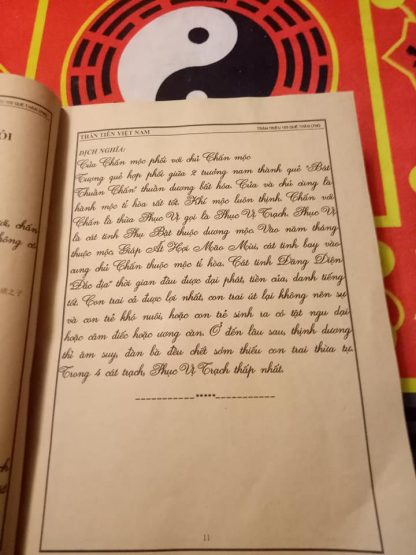 THẦN TIÊN VIỆT NAM
TRẦN TRIỀU 100 QUẺ THÁNH ỨNG
DỊCH NGHĨA:
Cửa Chấn mộc phối với chủ Chấn mộc
Tượng quẻ hợp phối giữa 2 trưởng nam thành quẻ "Bát
Thuần Chấn" thuần dương bất hóa. Cửa và chủ cùng là
hành mộc tỉ hòa rất tốt. Khí mộc luôn thịnh. Chấn với
Chấn là thừa Phục Vị gọi là Phục Vị Trạch. Phục Vị
là cát tinh Phụ Bật thuộc dương mộc. Vào năm tháng
thuộc mộc Giáp Ất Hợi Mão Mùi, cát tinh bay vào
cung chủ Chấn thuộc mộc tỉ hòa. Cát tinh Đăng Diện
"Đắc địa" thời gian đầu được đại phát, tiền của, danh tiếng
tốt. Con trai cả được lợi nhất, con trai út lại không nên sự
và con trẻ khó nuôi, hoặc con trẻ sinh ra có tật ngu dại
hoặc câm điếc hoặc ương càn. Ở đến lâu sau, thịnh dương
thì âm suy, đàn bà đều chết sớm thiếu con trai thừa tự.
Trong 4 cát trạch, Phục Vị Trạch thấp nhất.
-----------*****-----------
11